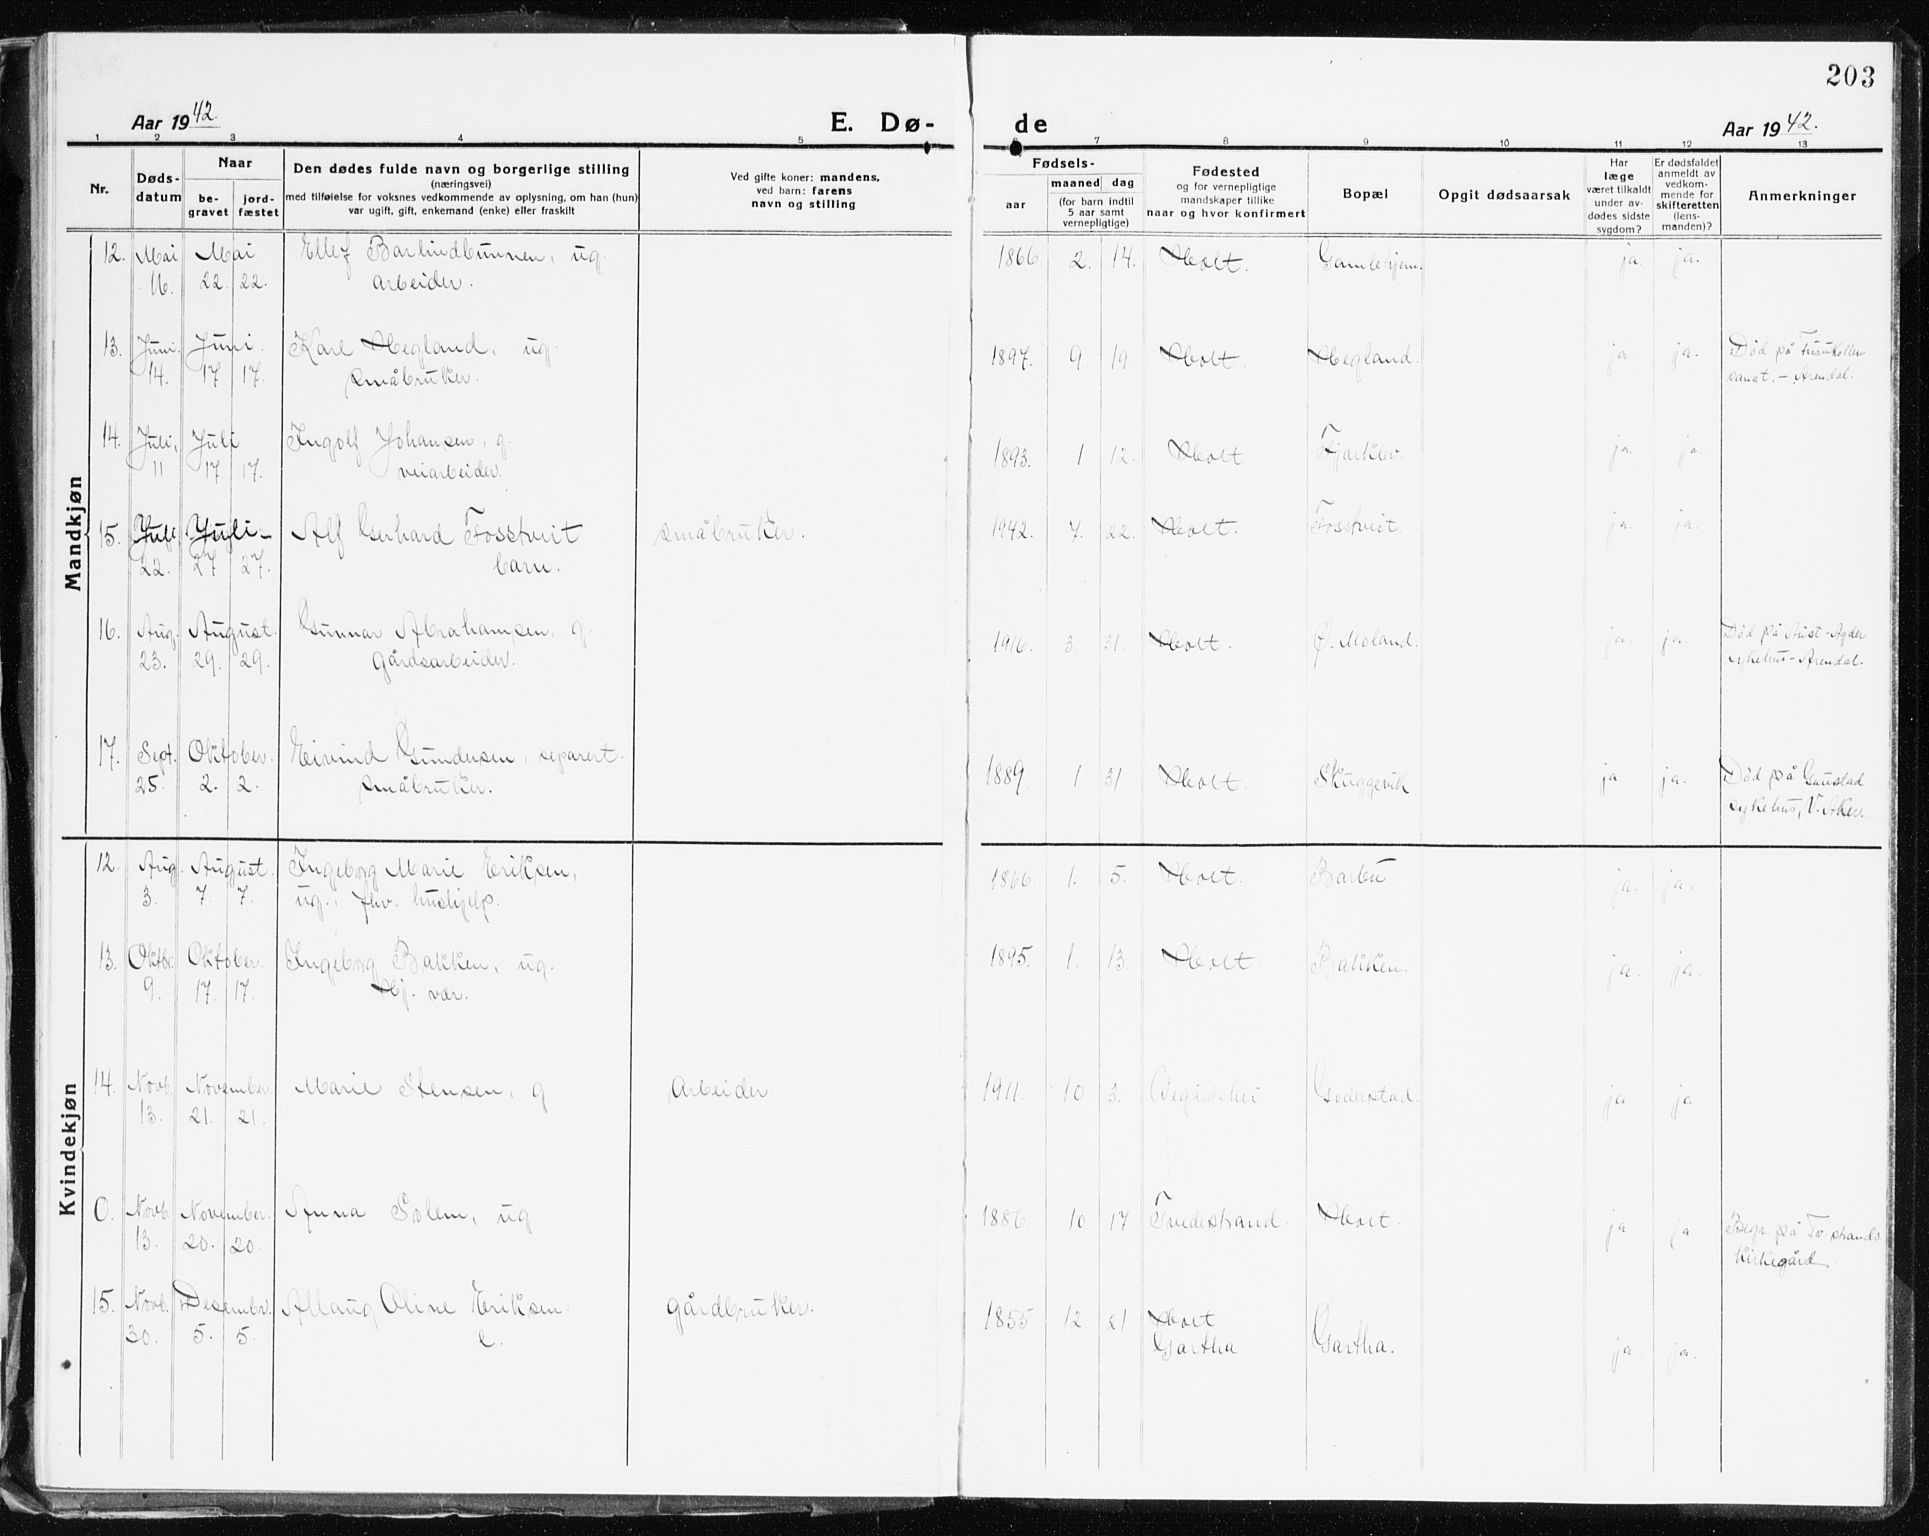 203
Aar 1942.
E. Dø-
de
Aar 1942.
1 2 3 4 5 6 7 8 9 10 11 12 13
Nr.
Døds-
datum
Naar
be-
gravet
jord-
fæstet
Den dødes fulde navn og borgerlige stilling
(næringsvei)
med tilføielse for voksnes vedkommende av oplysning, om han (hun)
var ugift, gift, enkemand (enke) eller fraskilt
Ved gifte koner: mandens,
ved barn: farens
navn og stilling
Fødsels-
aar
maaned dag
(for barn indtil
5 aar samt
vernepligtige)
Fødested
og for vernepligtige
mandskaper tillike
naar og hvor konfirmert
Bopæl
Opgit dødsaarsak
Har
læge
været tilkaldt
under av-
dødes sidste
sygdom?
Er dødsfaldet
anmeldt av
vedkom-
mende for
skifteretten
(lens-
manden)?
Anmerkninger
Mandkjøn
12. Mai Mai Ellef Barlindbunnen, ug. 1866. 2. 14. Holt. Gamlehjem. ja. ja.
16. 22. 22. arbeider.
13. Juni. Juni. Karl Hegland, ug. 1897. 9. 19 Holt. Hegland. ja ja. Død på Furukollen
14. 17 17. småbruker. sanat. - Arendal.
14. Juli, Juli Ingolf Johansen, g. 1893. 1 12. Holt Fjærkleiv. ja. ja.
11 17 17. veiarbeider.
15. Juli Juli- Alf Gerhard Fosstveit småbruker. 1942. 7. 22. Holt. Fosstveit. ja. ja.
22. 27 27. barn.
16. Aug. August. Gunnar Abrahamsen, g. 1916. 3. 31. Holt. Ø. Moland. ja. ja. Død på Aust-Agder
23. 29. 29. gårdsarbeider. sykehus-Arendal.
17. Sept. Oktober. Eivind Gundersen, separert. 1889. 1 31. Holt. Skuggevik. ja ja. Død på Gaustad
25. 2. 2. småbruker. sykehus, V. Aker.
Kvindekjøn
12. Aug. August. Ingeborg Marie Eriksen, 1866. 1. 5. Holt. Barbu ja. ja.
3. 7. 7. ug., fhv. hushjelp.
13. Oktbr. Oktober. Ingeborg Bakken, ug. 1895. 1. 13. Holt. Bakken. ja. ja.
9. 17. 17. Hj. vær.
14. Novb. November Marie Stensen, g arbeider. 1911. 10 3. Vegårdshei Goderstad. ja. ja.
13. 21. 21.
0. Novb. November. Anna Solem, ug. 1886. 10 17 Tvedestrand. Holt. ja ja. Begr på Tv-strands
13. 20. 20. kirkegård.
15. Novb. Desembr. Allaug Oline Eriksen. gårdbruker. 1855 12 21 Holt Gartha. ja. ja.
30. 5. 5. e. Gartha